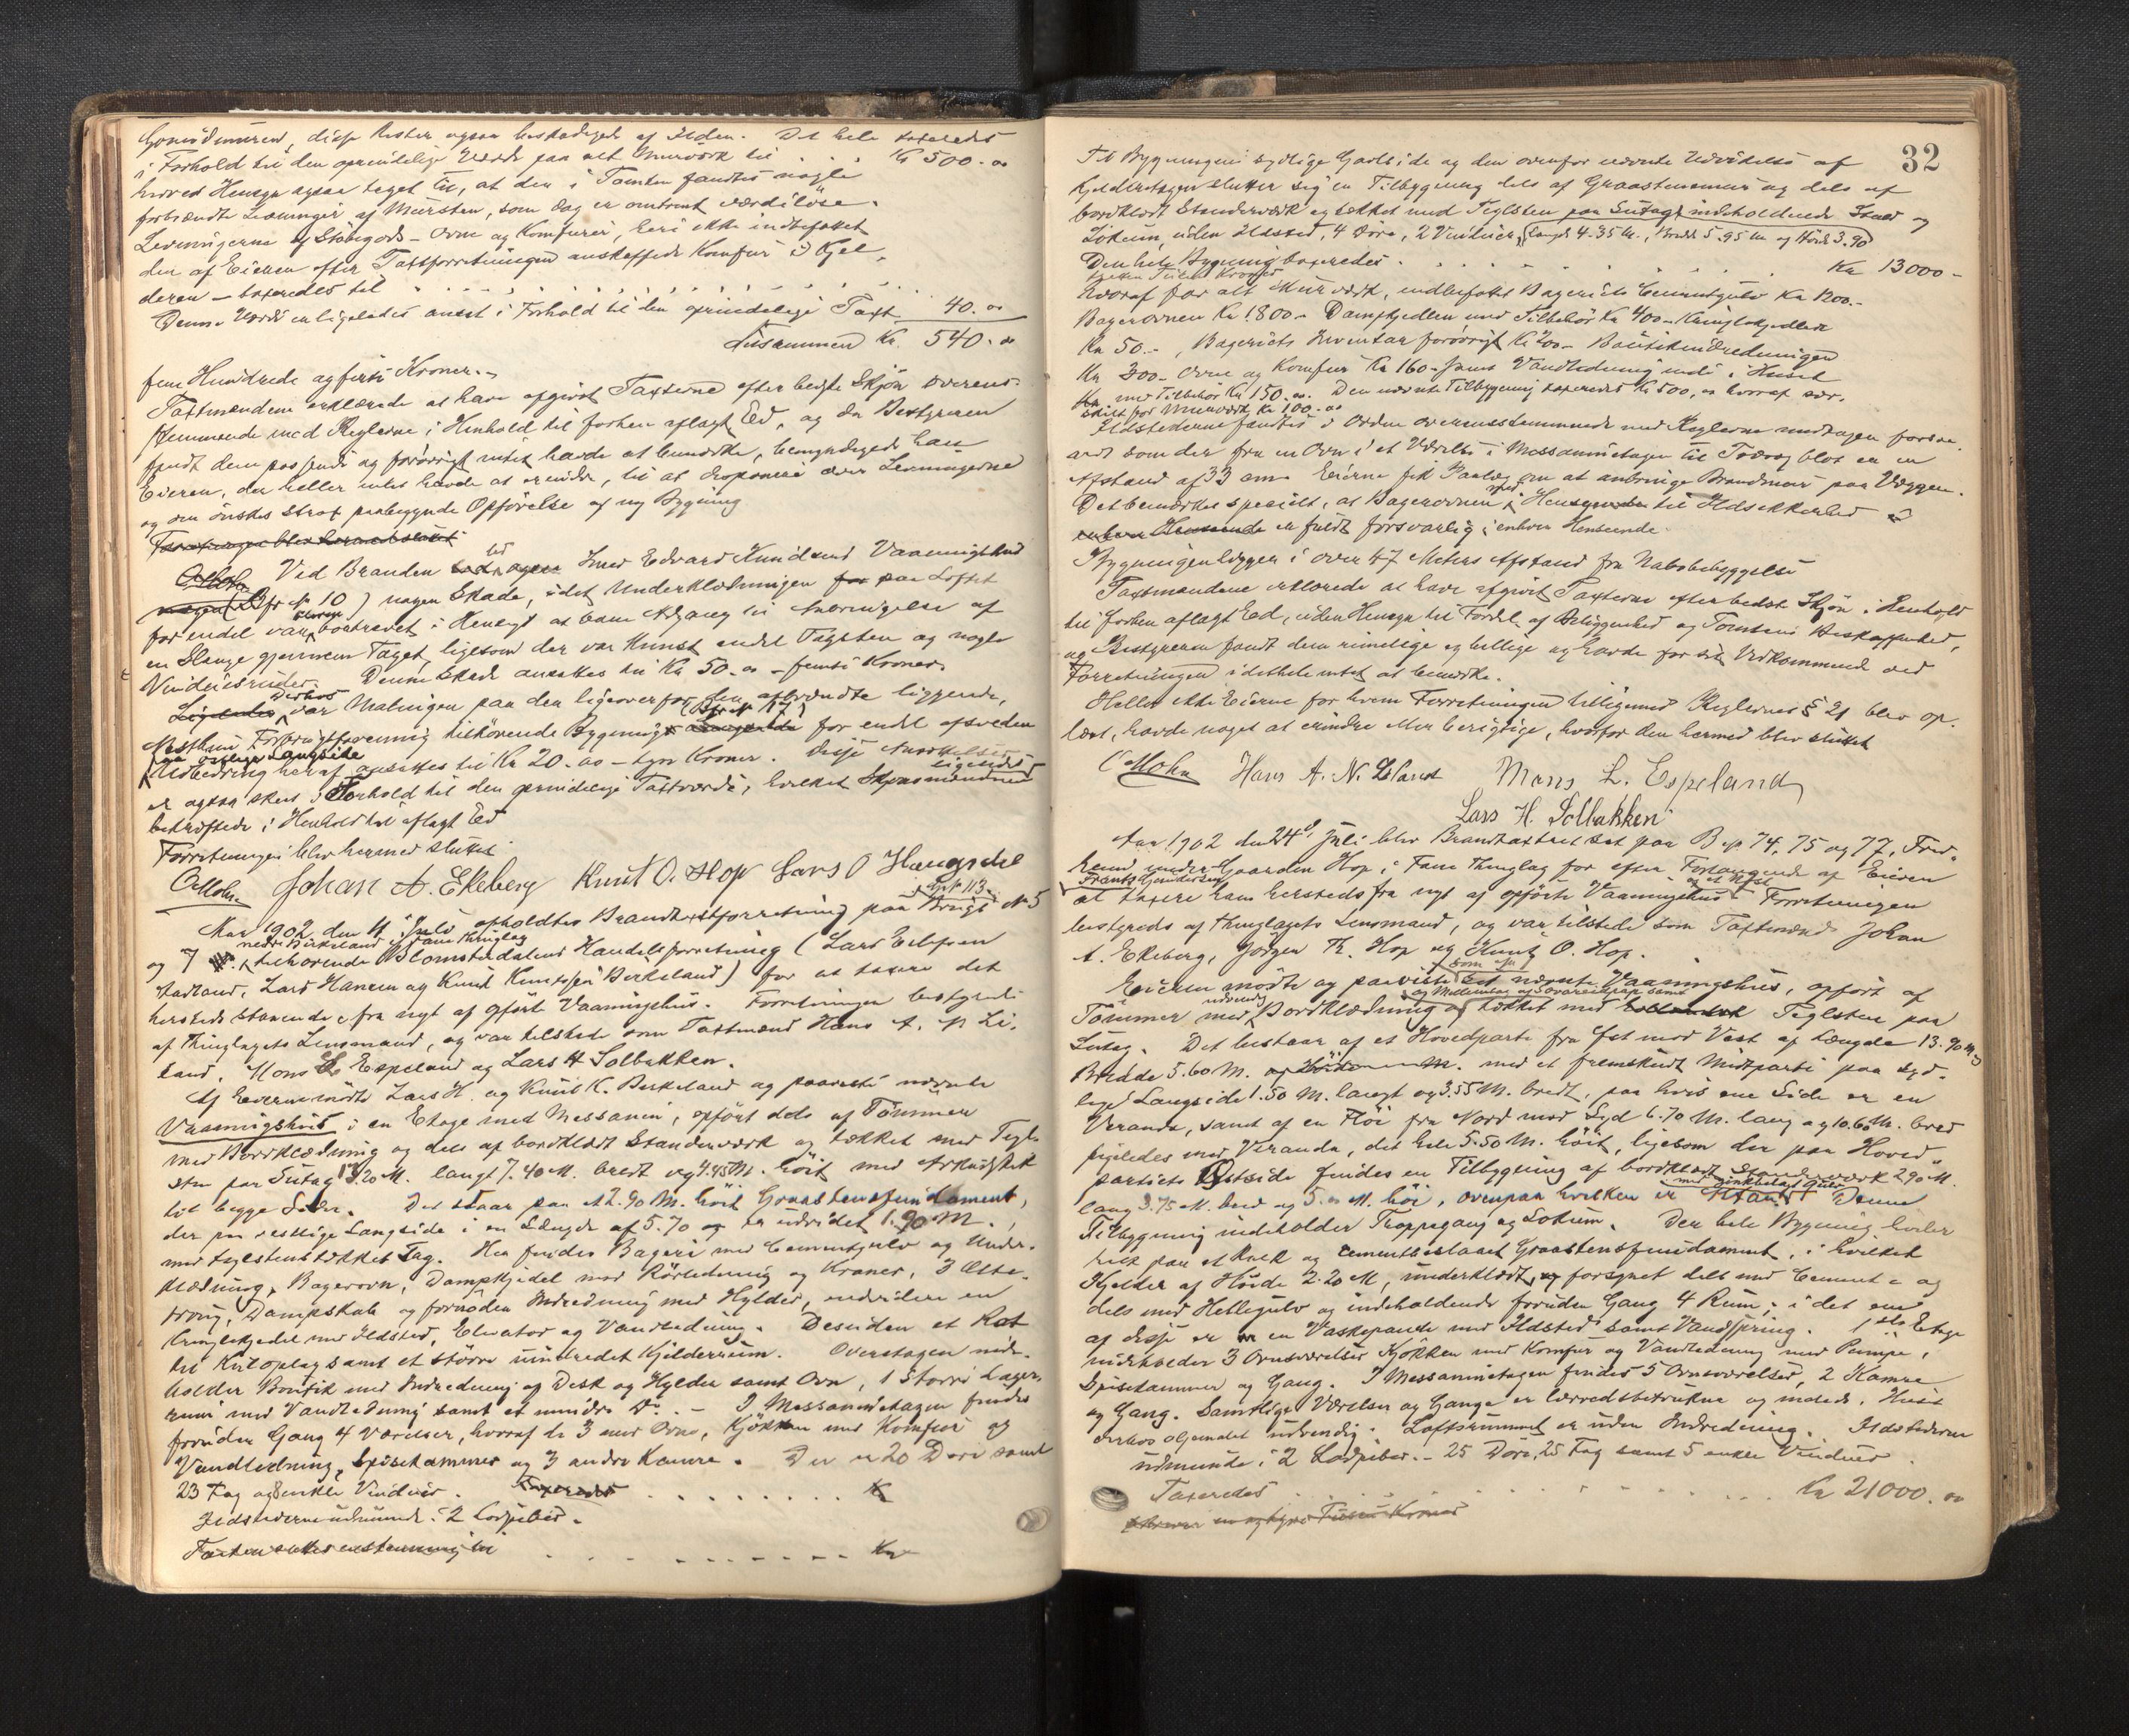 disse Rester ogsaa beskadiget af Ilden. Det hele taxeredes
i Forhold til den oprindelige Værdi paa alt Murværk til . . . Kr 500.00
hvorved Hensyn ogsaa toges til, at der i Tomten fandtes nogle
forbrændte Levninger af Mursten, som dog er omtrent værdiløse.
Levningerne af Støbegods- Ovne og Komfurer, heri ikke indbefattet
den af Eieren efter Taxtforretningen anskaffede Komfur i Kjel-
deren - taxeredes til
Denne Værdi er ligeledes ansat i Forhold til den oprindelige Taxt 40.00
Tilsammen Kr. 540.00
fem Hundrede og firti Kroner.
Taxtmændene erklærede at have afgivet Taxterne efter bedste Skjøn overens-
stemmende med Reglerne i Henhold til forhen aflagt Ed, og da Bestyreren
fandt dem passende og forøvrigt intet havde at bemærke, bemyndigede han
Eieren, der heller intet havde at erindre, til at disponere over Levningerne
og om ønskes strax paabegynde Opførelse af ny Bygning
Forretningen blev hermed sluttet
Ved Branden led Smed Edvard Knudsens Vaaningshus
(Bfr No 10) nogen Skade, idet Underklædningen paa Loftet
for endel var bortrevet i Hensigt at bane Adgang til Anbringelse af
en Slange gjennem Taget, ligesom der var knust endel Tagsten og nogle
Vinduesruder. Denne Skade ansattes til Kr 50.00 - femti Kroner.
Ligeledes var Malingen paa den ligeoverfor den afbrændte liggende,
Nesttun Forbrugsforening tilhørende Bygnings (Bfr No 17) for endel afsveden
paa østlige Langside
Udbedring heraf ansattes til Kr 20.00 - tyve Kroner. Disse Ansættelser
er ogsaa skeet i Forhold til den oprindelige Taxtværdi, hvilket Skjønsmændene ligeledes
bekræftede i Henhold til aflagt Ed
Forretningen blev hermed sluttet
CMohn Johan A. Ekeberg Knut O. Hop Lars O Haugsdal
Aar 1902 den 4 Juli afholdtes Brandtaxtforretning paa Brugs No 5
og 7 nedre Birkeland i Fane Thinglag tilhørende Blomsterdalens Handelsforretning (Lars Ellefsen
Lars Hansen og Knut Knudsen Birkeland) for at taxere det
hersteds staaende fra nyt af opført Vaaningshus. Forretningen bestyredes
af Thinglagets Lensmand, og var tilstede som Taxtmænd Hans A. N. Li-
land, Mons L Espeland og Lars H Solbakken.
Af Eierne mødte Lars H. og Knut K. Birkeland og paaviste nævnte
Vaaningshus i en Etage med Messanin, opført dels af Tømmer
med Bordklædning og dels af bordklædt Standerværk og tækket med Tegl-
sten paa Sutag 13.20 M. langt 7.40 M. bredt og 4.45 M. høit med
tot begge Sider. Det staar paa et 2.90 M. høit Graastensfundament,
der paa vestlige Langside i en Længde af 5.70 er udvidet 1.90 M.,
med teglstenstækket Tag. Her findes Bageri med Cementgulv og Under-
klædning, Bagerovn, Dampkjedel med Rørledning og Kraner, 3 Elte-
troug, Dampskab og fornøden Indredning med Hylder, endvidere en
kringlekjedel med Ildsted, Elevator og Vandledning. Desuden et Rot
til Kuloplag samt et større uindredet Kjelderrum. Overetagen inde-
holder Boutik med Indredning af Desk og Hylder samt Ovn, 1 større Lager-
rum med Vandledning samt et mindre Do. - I Messaninetagen findes
foruden Gang 4 Værelser, hvoraf de 3 med Ovne, Kjøkken med Komfur og
Vandledning, Spisekammer og 3 andre Kamre. Der er 20 Døre samt
23 Fag og 8 enkle Vinduer. Taxeredes . . . . . . . . Kr
Ildstederne udmunde i 2 Lodpiber.
. . . . . . . . Kr
32
Til Bygningens sydlige Gavlside og den ovenfor nævnte Udvidelse af
Kjelderetagen slutter sig en Tilbygning dels af Graastensmur og dels af
bordklædt Standerværk og tækket med Teglsten paa Sutag, indeholdende Stald og
Lokum, uden Ildsted, 4 Døre, 2 Vinduer, Længde 4.35 M., Bredde 5.95 M og Høide 3.90
Den hele Bygning taxeredes . . . . . . . . . Kr 13000-
tretten Tusind Kroner
hvoraf for alt Murværk, indbefattet Bageriets Cementgulv Kr 1200.-
Bagerovnen Kr 1800- Dampkjedlen med Tilbehør Kr 400- Kringlekjedlen
Kr 50.-, Bageriets Inventar forøvrigt Kr 200- Boutikindredningen
Kr 300- Ovne og Komfur Kr 160- samt Vandledning inde i Huset
med Tilbehør Kr 150.00. Den nævnte Tilbygning taxeredes Kr 500,00 hvoraf sær-
skilt for Murværk Kr 100.00
Ildstederne fandtes i Orden overensstemmende med Reglerne undtagen forsaa-
vidt som der fra en Ovn i et Værelse i Messaninetagen til Trævæg blot er en
Afstand af 33 cm. Eierne fik Paalæg om at anbringe Brandmur paa Væggen.
Det bemærkes specielt, at Bagerovnen med Hensyn til Ildsikkerhed
er fuldt forsvarlig i enhver Henseende.
Bygningen ligger i over 47 Meters Afstand fra Nabobebyggelse
Taxtmændene erklærede at have afgivet Taxterne efter bedste Skjøn i Henhold
til forhen aflagt Ed, uden Hensyn til Fordel af Beliggenhed og Tomtens Beskaffenhed,
og Bestyreren fandt dem rimelige og billige og havde for sit Vedkommende ved
Forretningen i det hele intet at bemærke.
Heller ikke Eierne for hvem Forretningen tilligemed Reglernes § 21 blev op-
læst, havde noget at erindre eller berigtige, hvorfor den hermed blev sluttet
CMohn Hans A. N. Liland Mons L. Espeland
Lars H. Solbakken
Aar 1902 den 24de Juli blev Brandtaxt holdt paa B no 74, 75 og 77, Fred-
heim under Gaarden Hop i Fane Thinglag for efter Forlangende af Eieren
Frants Gundersen
at taxere hans hersteds fra nyt af opførte Vaaningshus. Forretningen
bestyredes af Thinglagets Lensmand, og var tilstede som Taxtmænd Johan
A. Ekeberg, Jørgen Th. Hop og Knut O. Hop.
Eieren mødte og paaviste det nævnte Vaaningshus, opført af
Tømmer med udvendig Bordklædning og tækket med Teglsten paa
Sutag. Det bestaar af et Hovedparti fra Øst mod Vest af Længde 13.90 M og
Bredde 5.60 M. med et fremskudt Midtparti paa syd-
lige Langside 1.50 M. langt og 3.55 M. bredt, paa hvis ene Side er en
Veranda, samt af en Fløi fra Nord mod Syd 6.70 M. lang og 10.60 M. bred
ligeledes med Veranda, det hele 5.50 M. høit, ligesom der paa Hoved-
partiets Østside findes en Tilbygning af bordklædt Standerværk 2.90 M.
lang 3.75 M. bred og 5.00 M. høi, ovenpaa hvilken er Altan med zinkbelagt Gulv. Denne
Tilbygning indeholder Trappegang og Lokum. Den hele Bygning hviler
helt paa et hult og cementbeslaaet Graastensfundament, i hvilket
Kjelder af Høide 2.20 M, underklædt, og forsynet dels med Cement- og
dels med Hellegulv og indeholdende foruden Gang 4 Rum; i det ene
af disse er en Vaskepande med Ildsted samt Vandspring. 1ste Etage
indeholder 3 Ovnsværelser Kjøkken med Komfur og Vandledning med Pumpe,
Spisekammer og Gang. I Messaninetagen findes 5 Ovnsværelser, 2 Kamre
og Gang. Samtlige Værelser og Gange er lærredsbetrukne og malede. Huset
derhos oljemalet udvendig. Loftsrummet er uden Indredning. Ildstederne
udmunde i 2 Lodpiber. - 25 Døre, 25 Fag samt 5 enkle Vinduer.
Taxeredes . . . . . . . . . Kr 21000.00
en og tyve Tusen Kroner